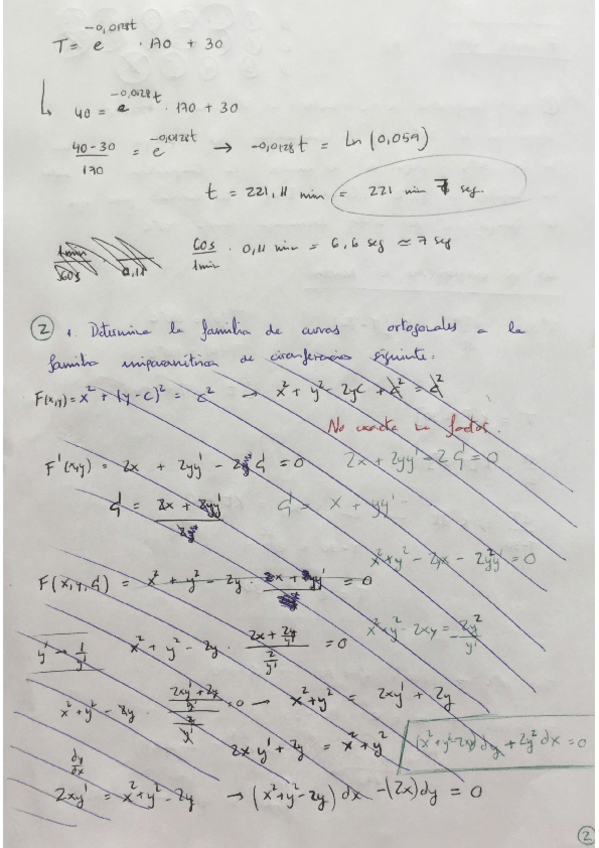 T = e^(-0,0128t) · 170 + 30
↳ 40 = e^(-0,0128t) · 170 + 30
(40-30)/170 = e^(-0,0128t) → -0,0128t = Ln(0,059)
t = 221,11 min = 221 min 7 seg.
60s/1min · 0,11 min = 6,6 seg ≃ 7 seg
② 1. Determina la familia de curvas ortogonales a la
familia uniparamétrica de circunferencias siguiente:
F(x,y) = x² + (y-c)² = c² → x² + y² - 2yc + c² = c²
No exacta ni factor.
F'(x,y) = 2x + 2yy' - 2y'G = 0 2x + 2yy' - 2G' = 0
x + yy'
x² + y² - 2yx - 2y²y' = 0
F(x,y,G) = x² + y² - 2y · = 0
x² + y² - 2xy = 2y²/y'
y' → 1/y' x² + y² - 2y · (2x + 2y/y')/(2/y') = 0
x² + y² - 2y · ((2xy' + 2y)/y')/(2/y') = 0 → x² + y² = 2xy' + 2y
2xy' + 2y = x² + y²
(x² + y² - 2xy) dy + 2y² dx = 0
dy/dx
2xy' = x² + y² - 2y → (x² + y² - 2y) dx - (2x) dy = 0
②